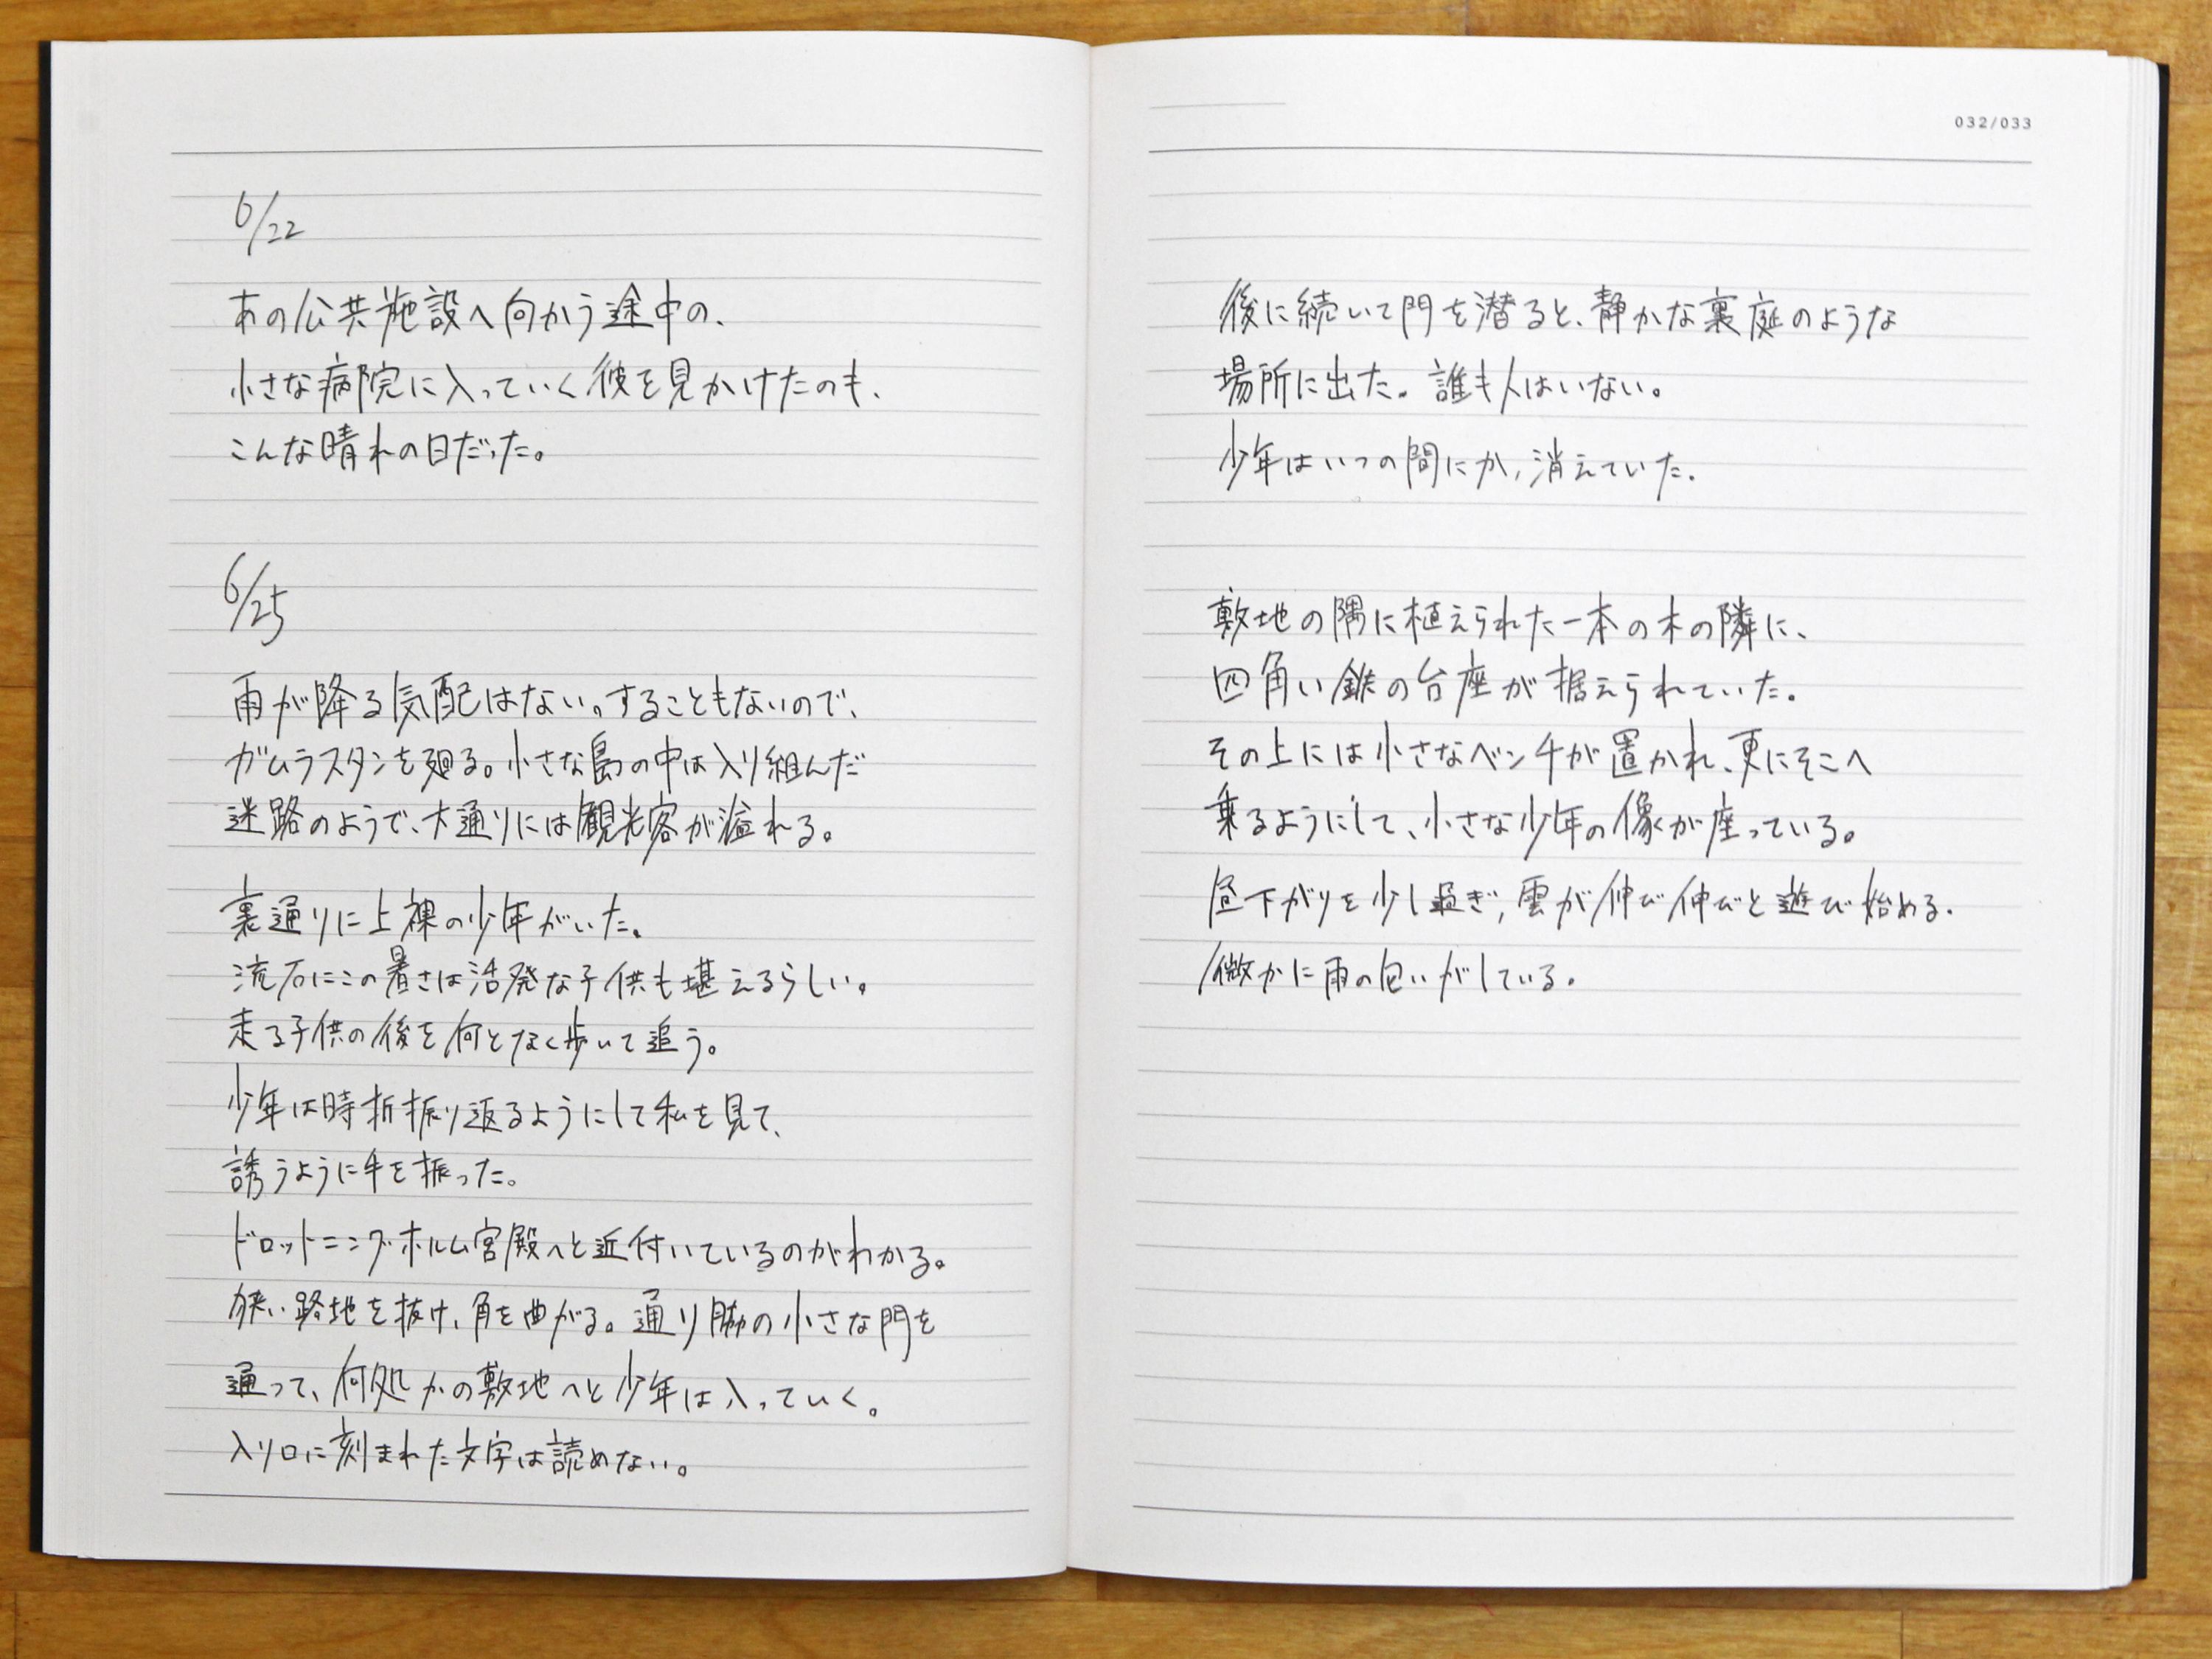 6/22
あの公共施設へ向かう途中の、
小さな病院に入っていく彼を見かけたのも、
こんな晴れの日だった。
6/25
雨が降る気配はない。することもないので、
ガムラスタンを廻る。小さな島の中は入り組んだ
迷路のようで、大通りには観光客が溢れる。
裏通りに上裸の少年がいた。
流石にこの暑さは活発な子供も堪えるらしい。
走る子供の後を何となく歩いて追う。
少年は時折振り返るようにして私を見て、
誘うように手を振った。
ドロットニングホルム宮殿へと近付いているのがわかる。
狭い路地を抜け、角を曲がる。通り脇の小さな門を
通って、何処かの敷地へと少年は入っていく。
入り口に刻まれた文字は読めない。
032/033
後に続いて門を潜ると、静かな裏庭のような
場所に出た。誰も人はいない。
少年はいつの間にか、消えていた。
敷地の隅に植えられた一本の木の隣に、
四角い鉄の台座が据えられていた。
その上には小さなベンチが置かれ、更にそこへ
乗るようにして、小さな少年の像が座っている。
昼下がりを少し過ぎ、雲が伸び伸びと遊び始める。
微かに雨の匂いがしている。